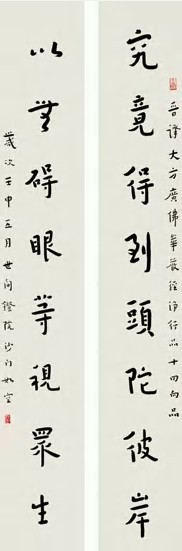 晉譯大方廣佛華嚴經淨行品十回向品
究竟得到頭陀彼岸
以無碍眼等視眾生
歲次壬申五月世间鐙院沙门如空